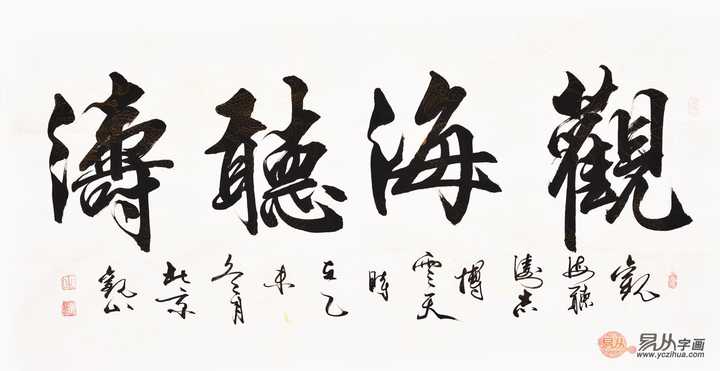 觀海聽濤
觀
海聽
濤志
博
雲天
時
在乙
未
冬月
北京
易从
易从字画
www.yczihua.com